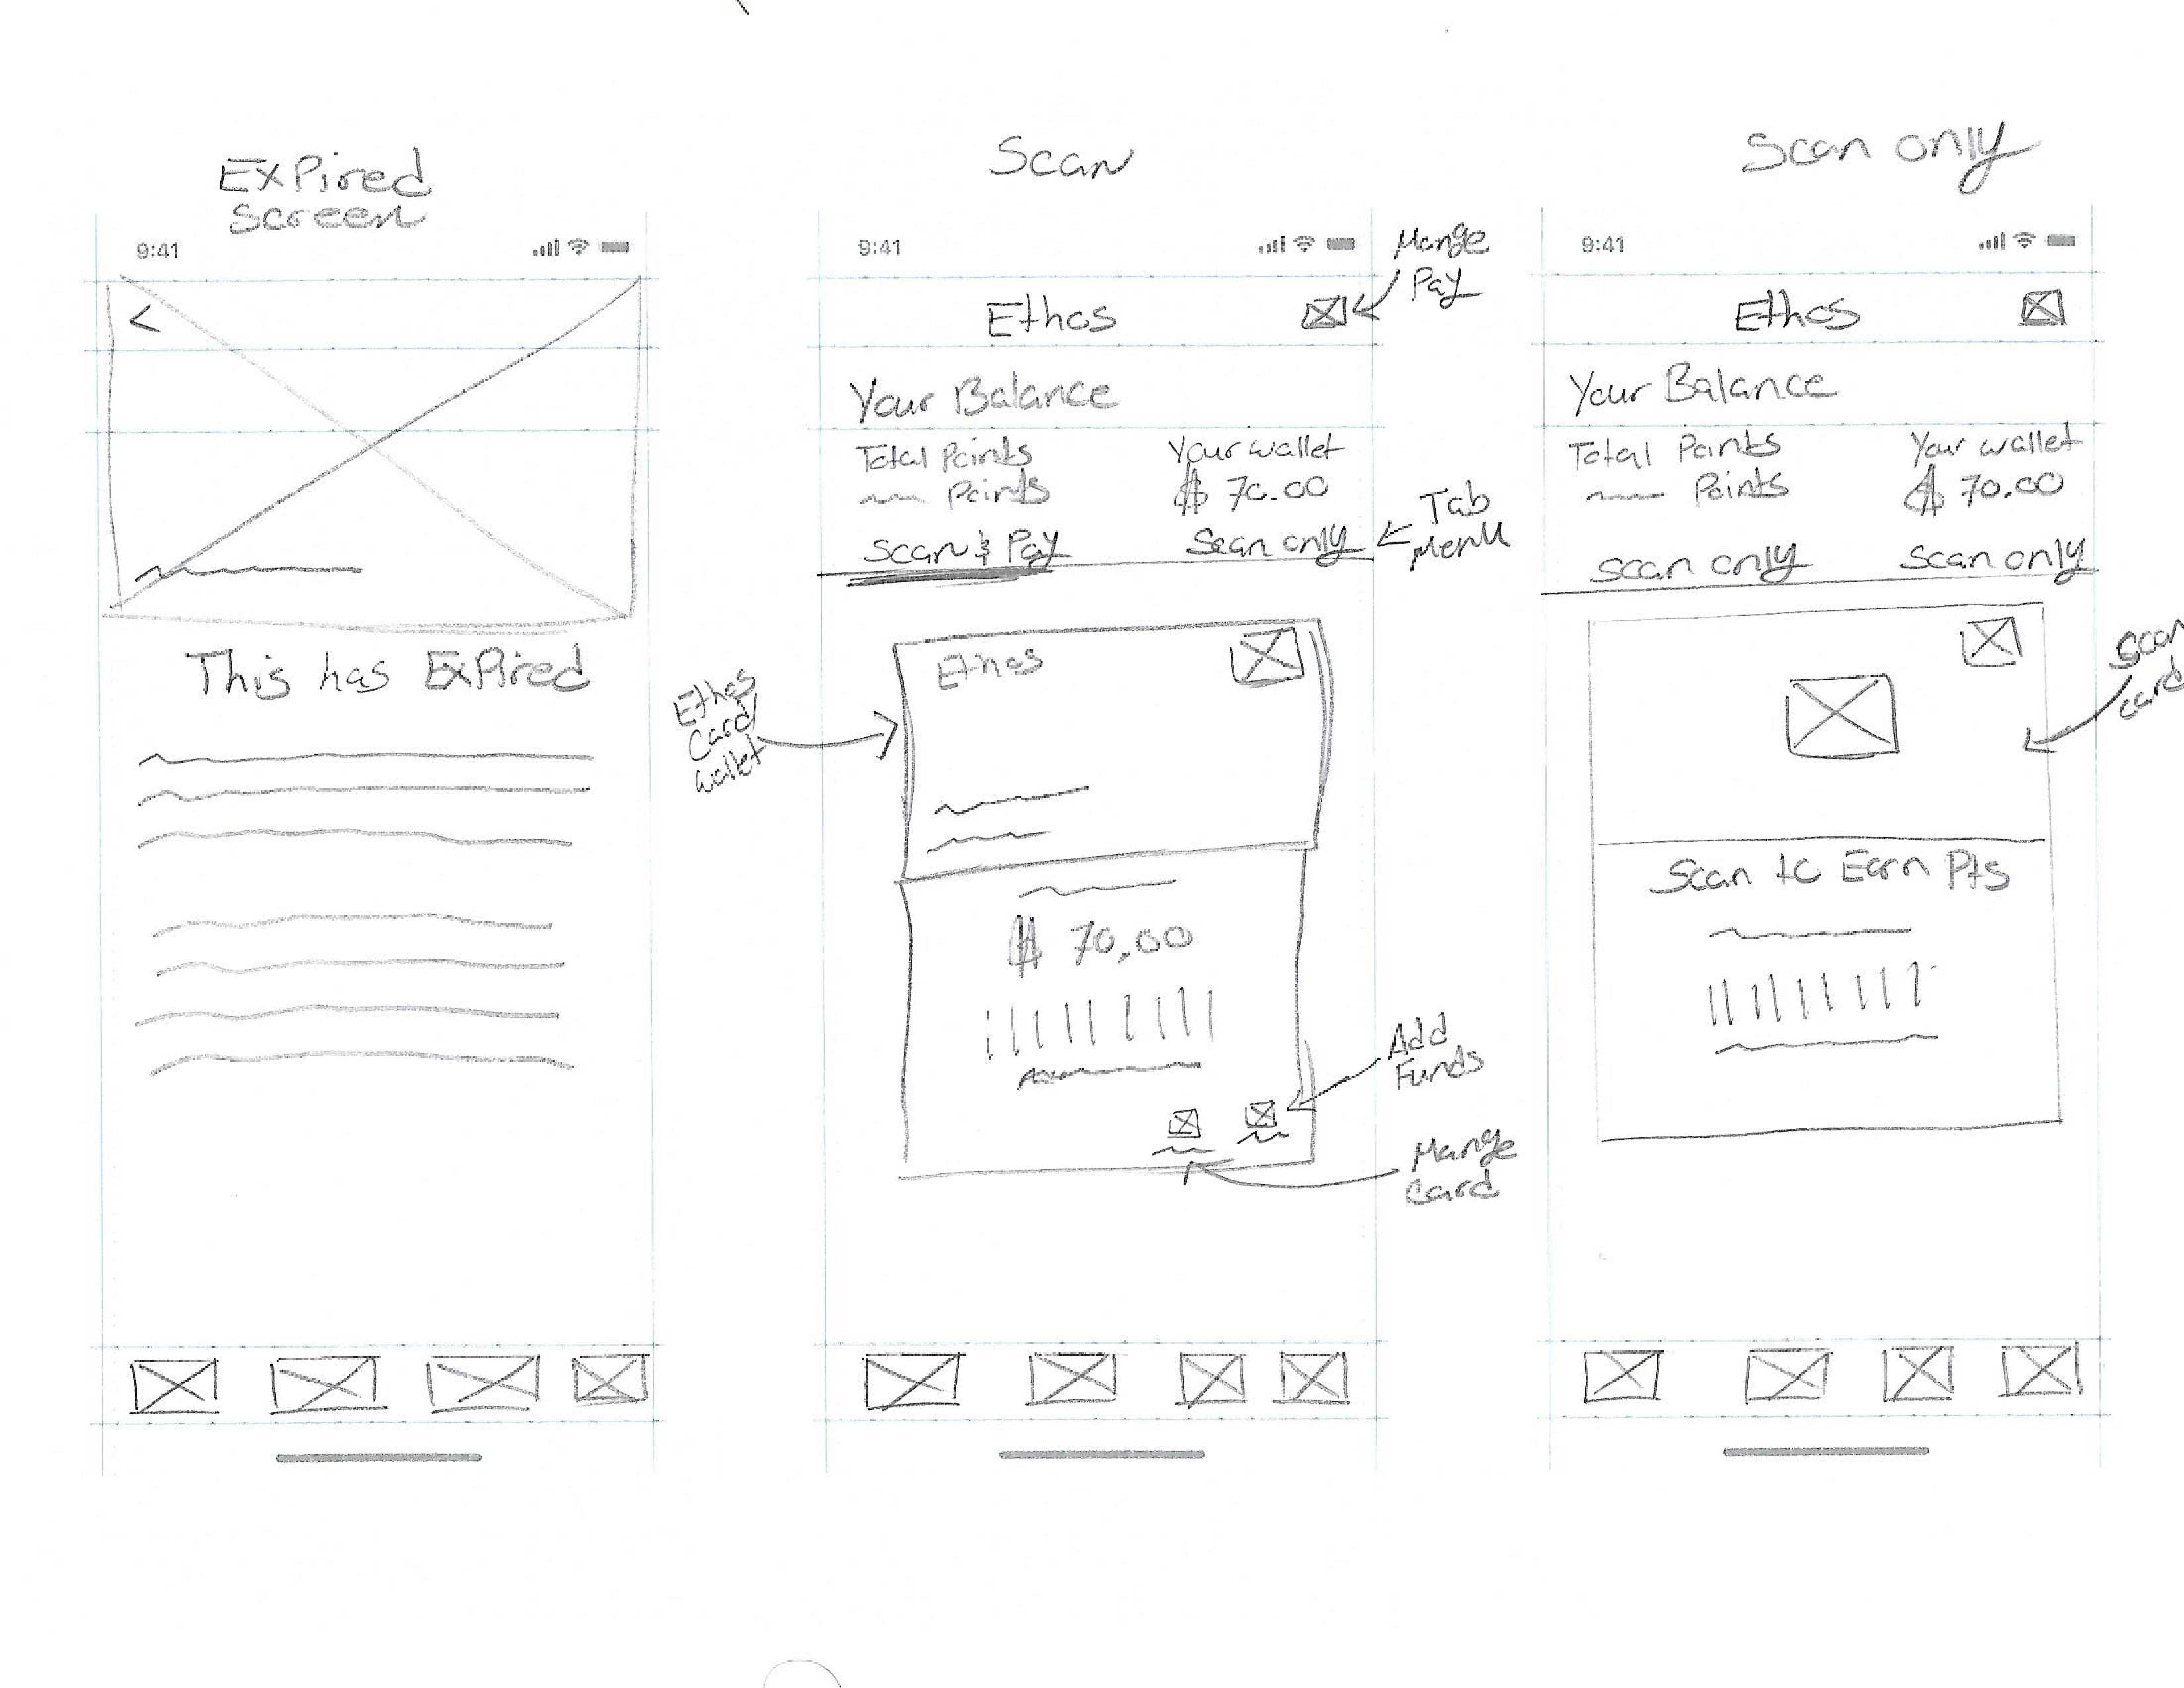 Expired
Screen
9:41
<
This has Expired
Scan
9:41
Mange
Pay
Ethos
Your Balance
Total Points
Your wallet
Points
$ 70.00
Scan & Pay
Scan only
Tab
Menu
Ethos
Card/
wallet
Ethos
$ 70.00
Add
Funds
Mange
Card
Scan only
9:41
Ethos
Your Balance
Total Points
Your wallet
Points
$ 70.00
Scan only
Scan only
Scan
card
Scan to Earn Pts